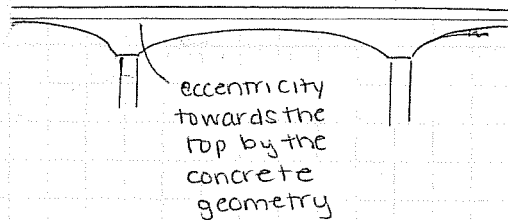 eccentricity
towards the
top by the
concrete
geometry